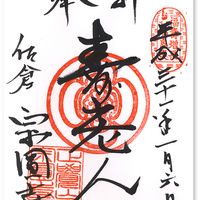 平成三十一年一月六日
奉
寿老人
佐倉
宗圓寺